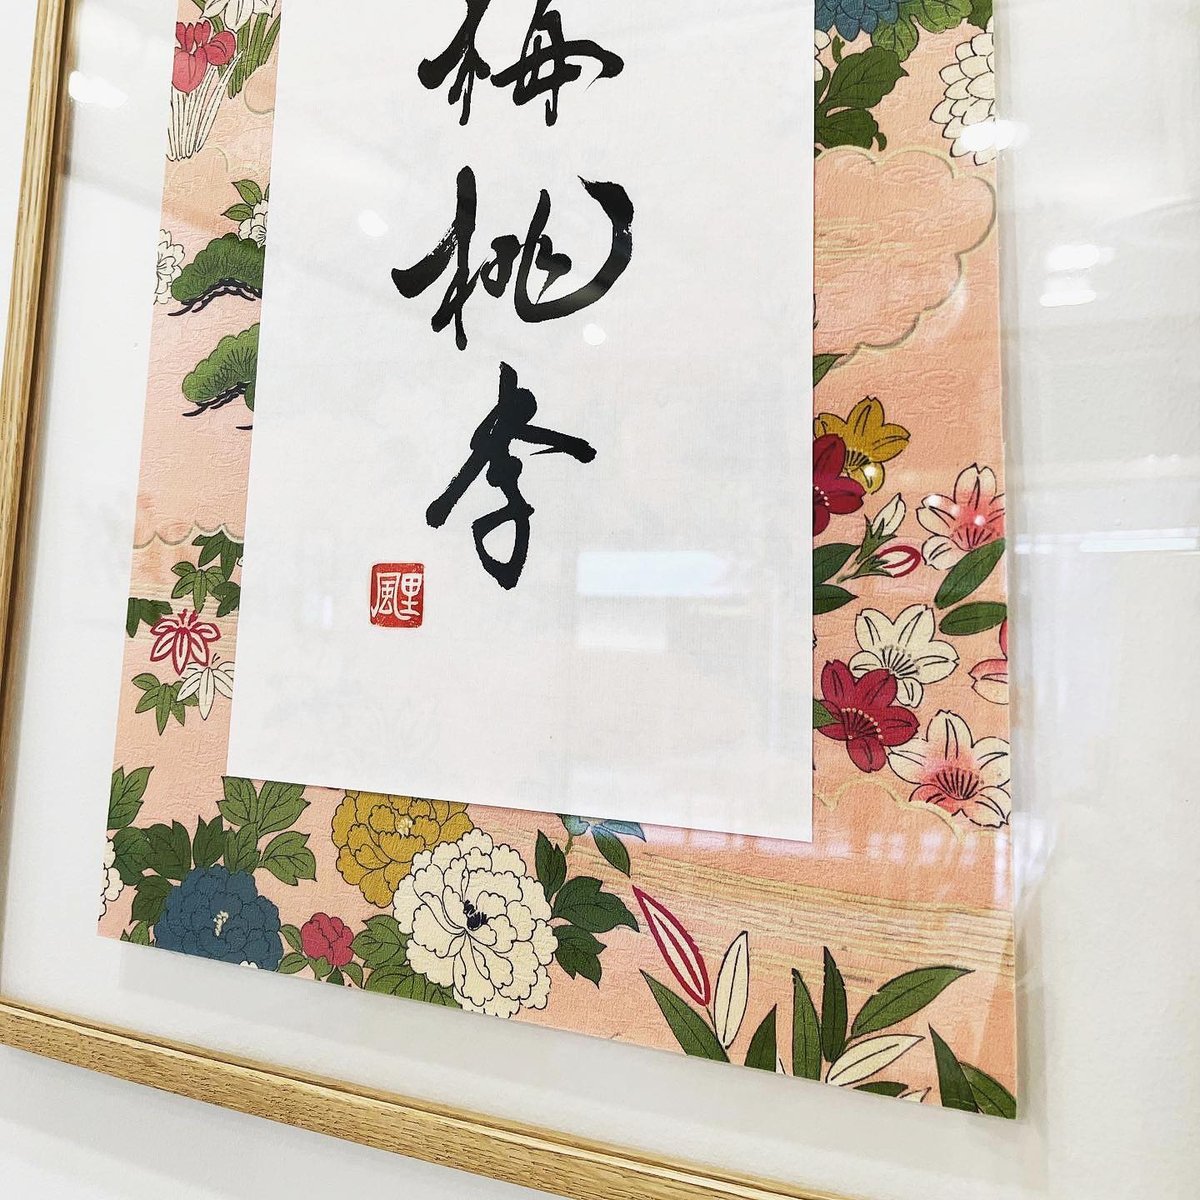 梅桃李
里風